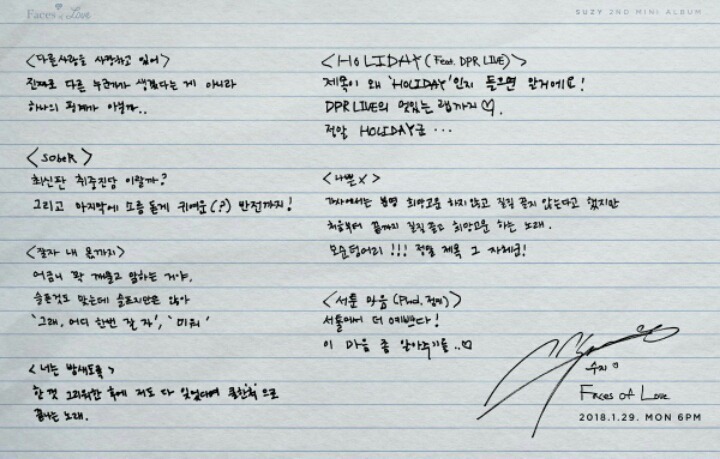 Faces of Love
SUZY 2ND MINI ALBUM
<다른사람을 사랑하고 있어>
진짜로 다른 누군가가 생겼다는 게 아니라
하나의 핑계가 아닐까..
<SObeR>
최신판 취중진담 이랄까?
그리고 마지막에 소름 돋게 귀여운(?) 반전까지!
<잘자 내 몫까지>
어금니 꽉 깨물고 말하는 거야.
슬픈것도 맞는데 슬프지만은 않아
'그래, 어디 한번 잘 자', '미워'
<너는 밤새도록>
한껏 그리워한 후에 저도 다 잊었다며 쿨한척 으로
끝나는 노래.
<HOLIDAY (Feat. DPR LIVE)>
제목이 왜 'HOLIDAY'인지 들으면 알거에요!
DPR LIVE의 멋있는 랩까지♡.
정말 HOLIDAY금 ...
<나쁜X>
가사에서는 분명 희망고문 하지 않고 질질 끌지 않는다고 했지만
처음부터 끝까지 질질 끌고 희망고문 하는 노래.
모순덩어리!!! 정말 제목 그 자체군!
<서툰 마음 (Prod. 점멸)>
서툴어서 더 예쁘다!
이 마음 좀 알아주기를..♡
수지
Faces of Love
2018.1.29. MON 6PM